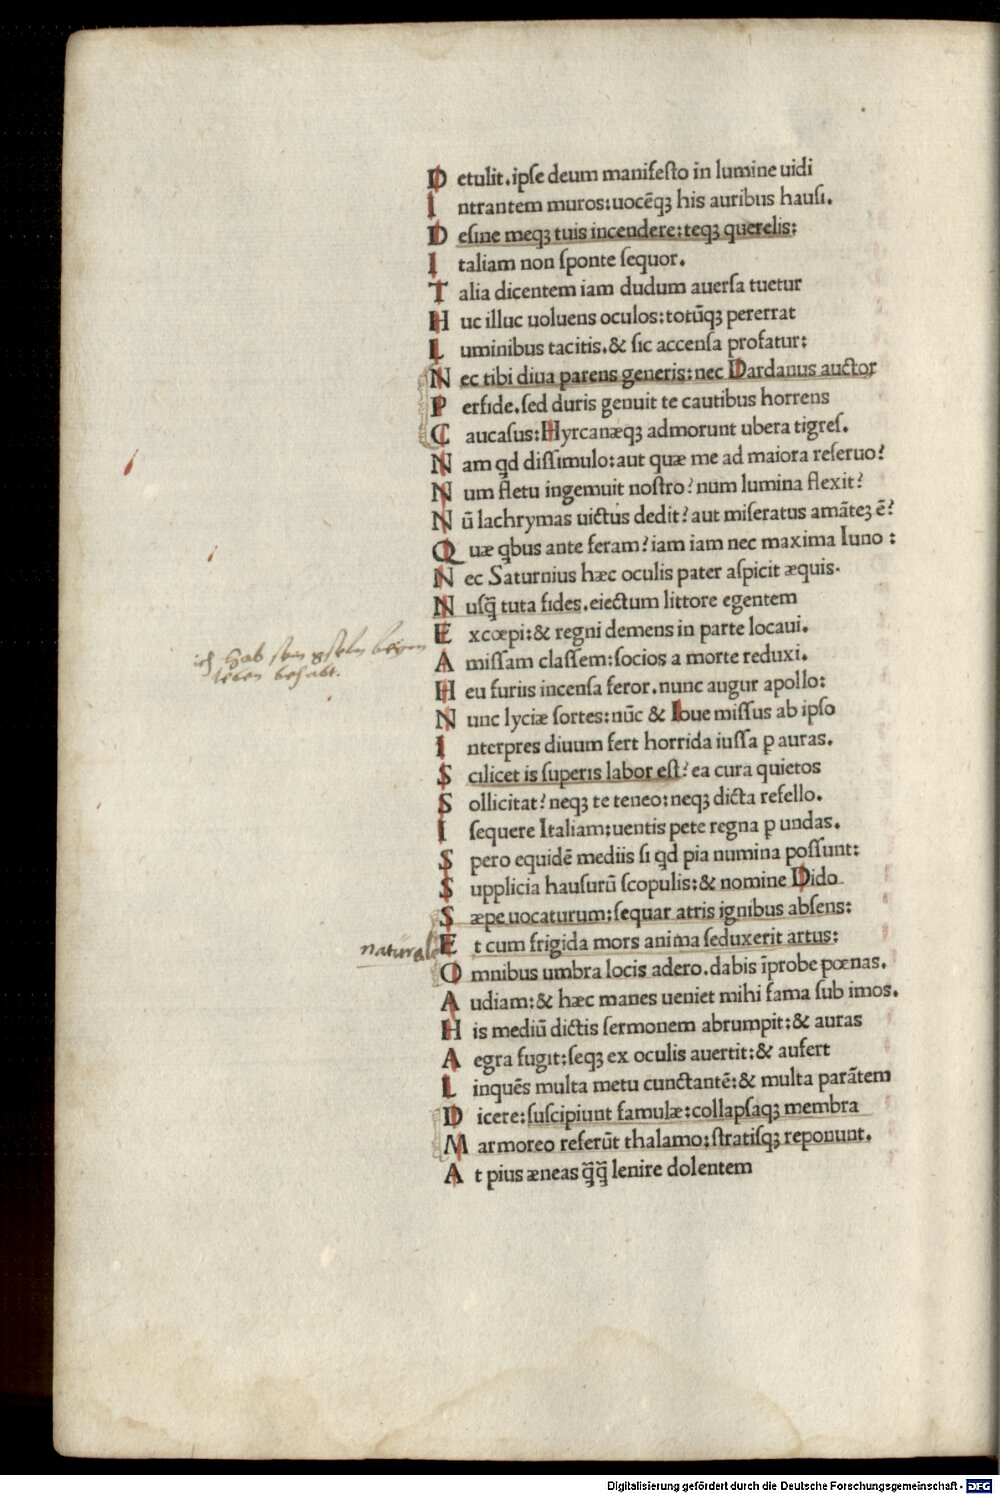 D etulit.ipſe deum manifeſto in lumine uidi
I ntrantem muros:uocēqꝫ his auribus hauſi.
D eſine meqꝫ tuis incendere:teqꝫ querelis:
I taliam non ſponte ſequor.
T alia dicentem iam dudum auerſa tuetur
H uc illuc uoluens oculos:totūqꝫ pererrat
L uminibus tacitis.& ſic accenſa profatur:
N ec tibi diua parens generis:nec Dardanus auctor
P erfide.ſed duris genuit te cautibus horrens
C aucaſus:Hyrcanæqꝫ admorunt ubera tigreſ.
N am qd diſſimulo:aut quæ me ad maiora reſeruo?
N um fletu ingemuit noſtro?num lumina flexit?
N ū lachrymas uictus dedit?aut miſeratus amāteꝫ ē?
Q uæ qbus ante feram?iam iam nec maxima Iuno :
N ec Saturnius hæc oculis pater aſpicit æquis.
N uſq̄ tuta fides.eiectum littore egentem
E xcœpi:& regni demens in parte locaui.
ich hab sein gsteln beyem
leben behabt.
A miſſam claſſem:ſocios a morte reduxi.
H eu furiis incenſa feror.nunc augur apollo:
N unc lyciæ ſortes:nūc & Ioue miſſus ab ipſo
I nterpres diuum fert horrida iuſſa p auras.
S cilicet is ſuperis labor eſt?ea cura quietos
S ollicitat?neqꝫ te teneo:neqꝫ dicta refello.
I ſequere Italiam:uentis pete regna p undas.
S pero equidē mediis ſi qd pia numina poſſunt:
S upplicia hauſurū ſcopulis:& nomine Dido
S æpe uocaturum:ſequar atris ignibus abſens:
natural
E t cum frigida mors anima ſeduxerit artus:
O mnibus umbra locis adero.dabis īprobe pœnas.
A udiam:& hæc manes ueniet mihi fama ſub imos.
H is mediū dictis ſermonem abrumpit:& auras
A egra fugit:ſeqꝫ ex oculis auertit:& aufert
L inquēs multa metu cunctantē:& multa parātem
D icere:ſuſcipiunt famulæ:collapſaqꝫ membra
M armoreo referūt thalamo:ſtratiſqꝫ reponunt.
A t pius æneas q̄q̄ lenire dolentem
Digitalisierung gefördert durch die Deutsche Forschungsgemeinschaft - DFG